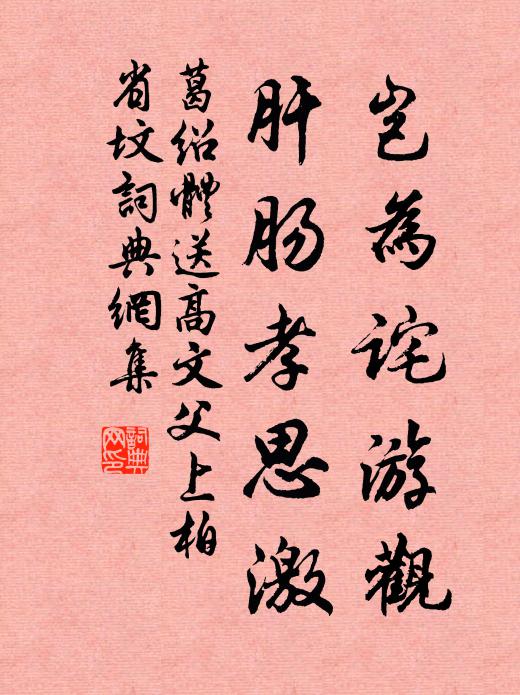 岂為詫游觀
肝肠孝思激
葛绍體送高文父上柏
省坟詞典網集
詞典
网印